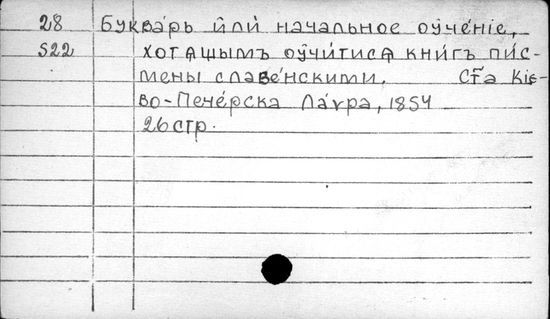 28 Буква́рь и҆лѝ нача́льное оу҆че́нїе,
522 хотѧ́щымъ оу҆чи́тисѧ кни́гъ пи́с-
мены славе́нскими. Ст҃а Кїе-
во-Пече́рска Ла́ѵра, 1854
26 стр.